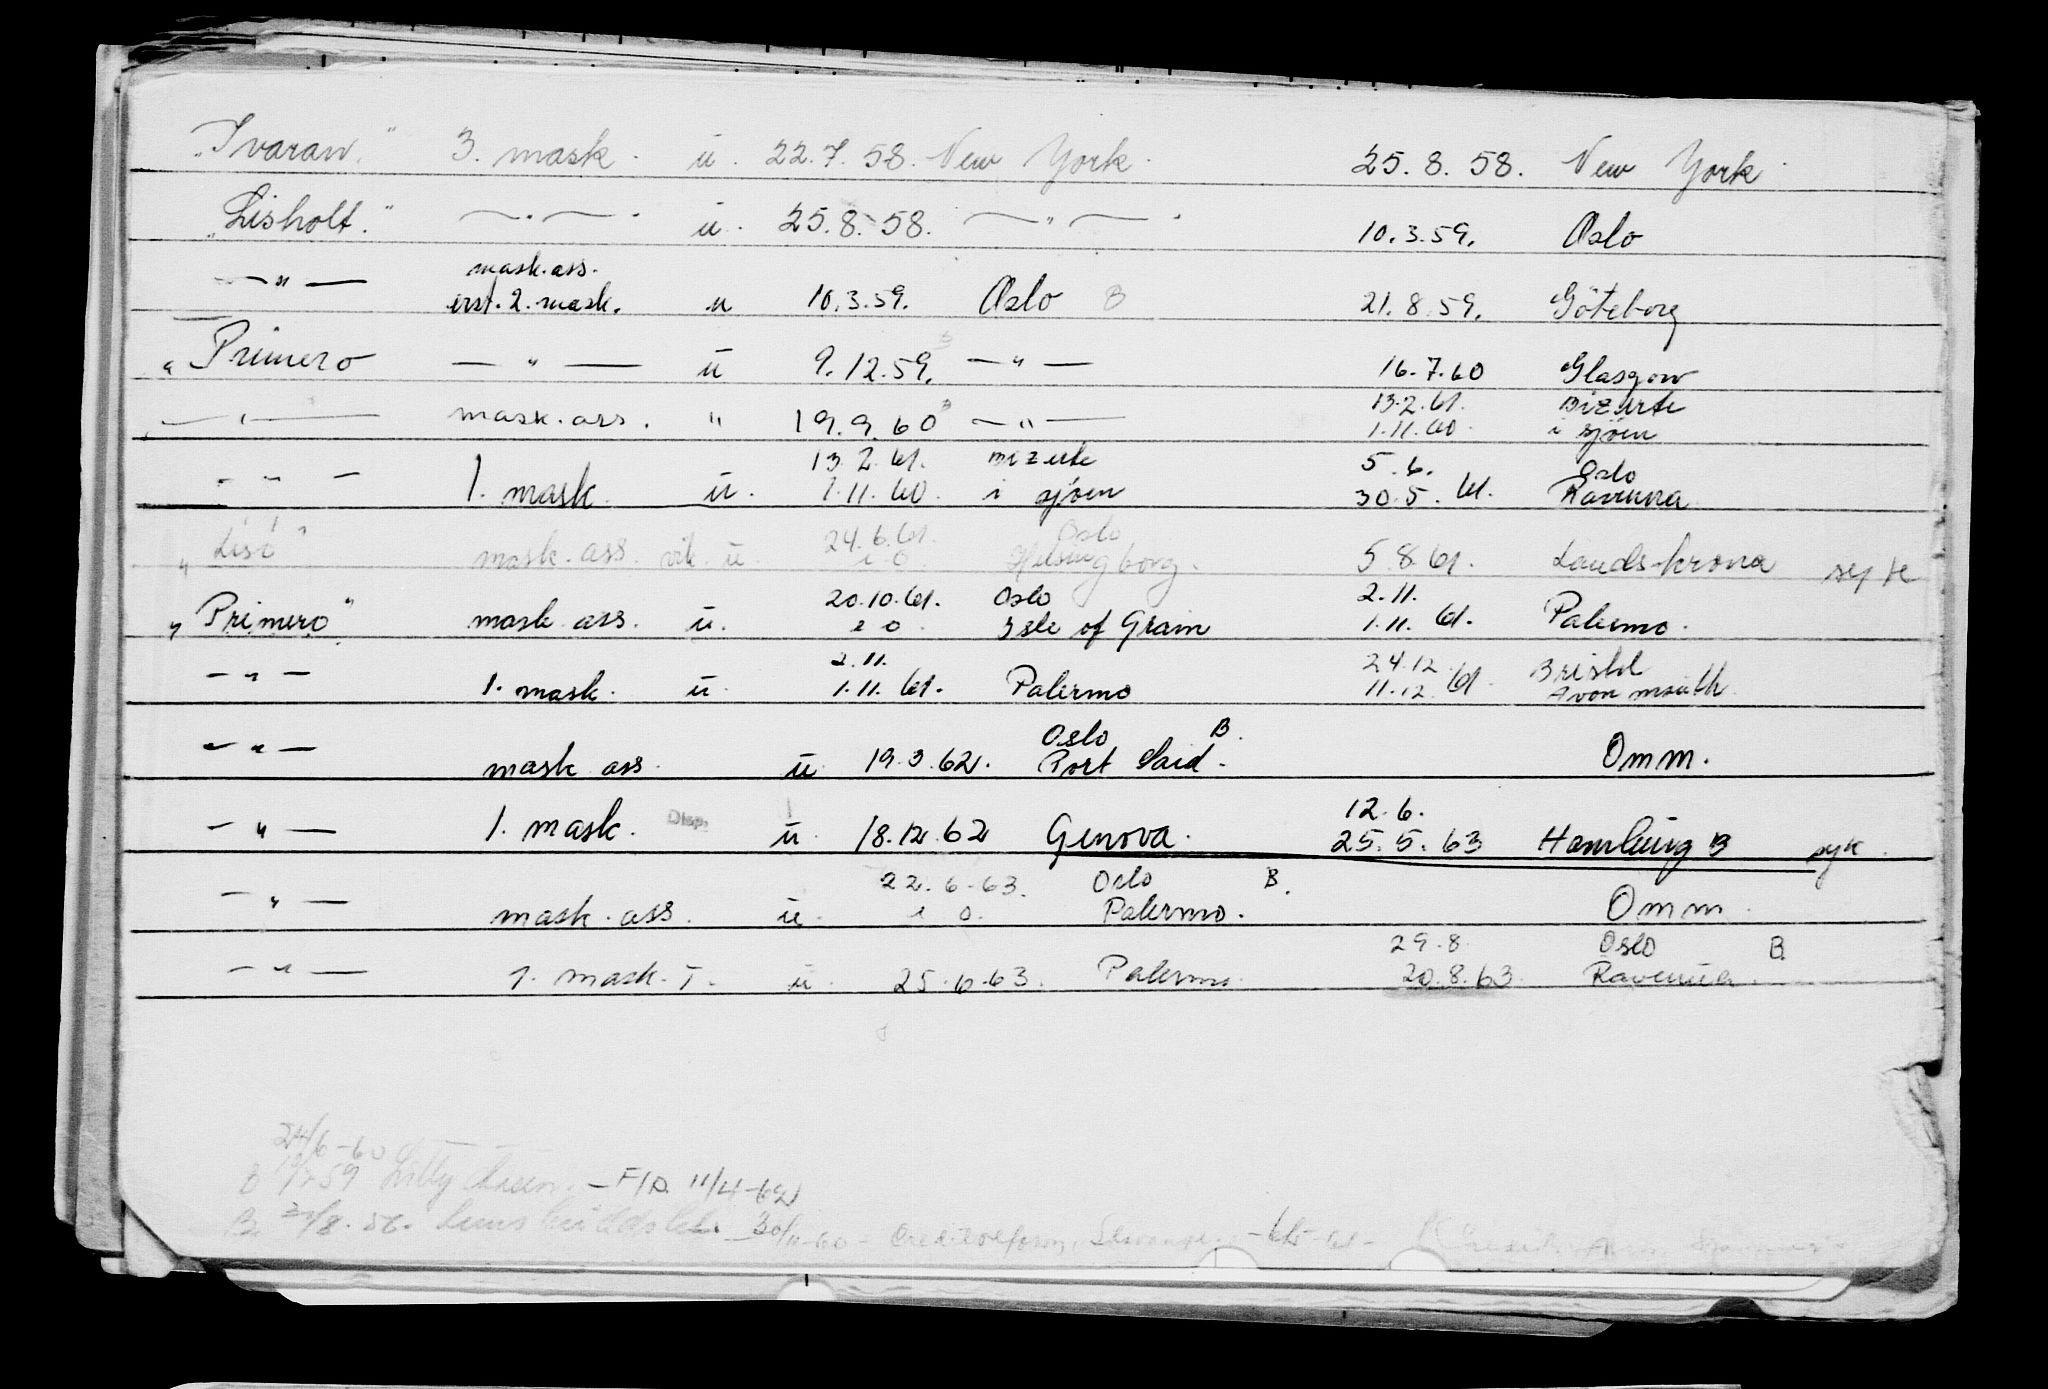 "Ivaran." 3. mask. u. 22.7.58. New York. 25.8.58. New York.
"Lisholt." —"— u. 25.8.58. —"— 10.3.59. Oslo
—"— mask.ass.
erst. 2. mask. u 10.3.59. Oslo B 21.8.59. Göteborg
"Primero —"— u 9.12.59. —"— 16.7.60 Glasgow
13.2.61. Bizerte
—"— mask.ass. " 19.9.60 —"— 1.11.60. i sjøen
13.2.61. Bizerte 5.6. Oslo
—"— 1. mask. u. 1.11.60. i sjøen 30.5.61. Ravenna
24.6.61. Oslo
"Lisö" mask.ass. vik. u. i O. Helsingborg. 5.8.61. Landskrona syk
20.10.61. Oslo 2.11.
"Primero" mask ass. u. i O. Isle of Grain 1.11.61. Palermo.
2.11. 24.12. Bristol
—"— 1. mask. u. 1.11.61. Palermo 11.12.61. Avonmouth
Oslo B.
—"— mask ass. u. 19.3.62. Port Said. Omm.
12.6.
—"— 1. mask. Disp. u. 18.12.62 Genova. 25.5.63 Hamburg B syk.
22.6.63. Oslo B.
—"— mask.ass. u. i O. Palermo. Omm.
29.8. Oslo B.
—"— 1. mask. T. u. 25.6.63. Palermo. 20.8.63. Ravenna.
24/6-60
B 59 Litty — F/D. 11/4-62
B. /8.56. 30/11-60 - Creditreform, Stavanger